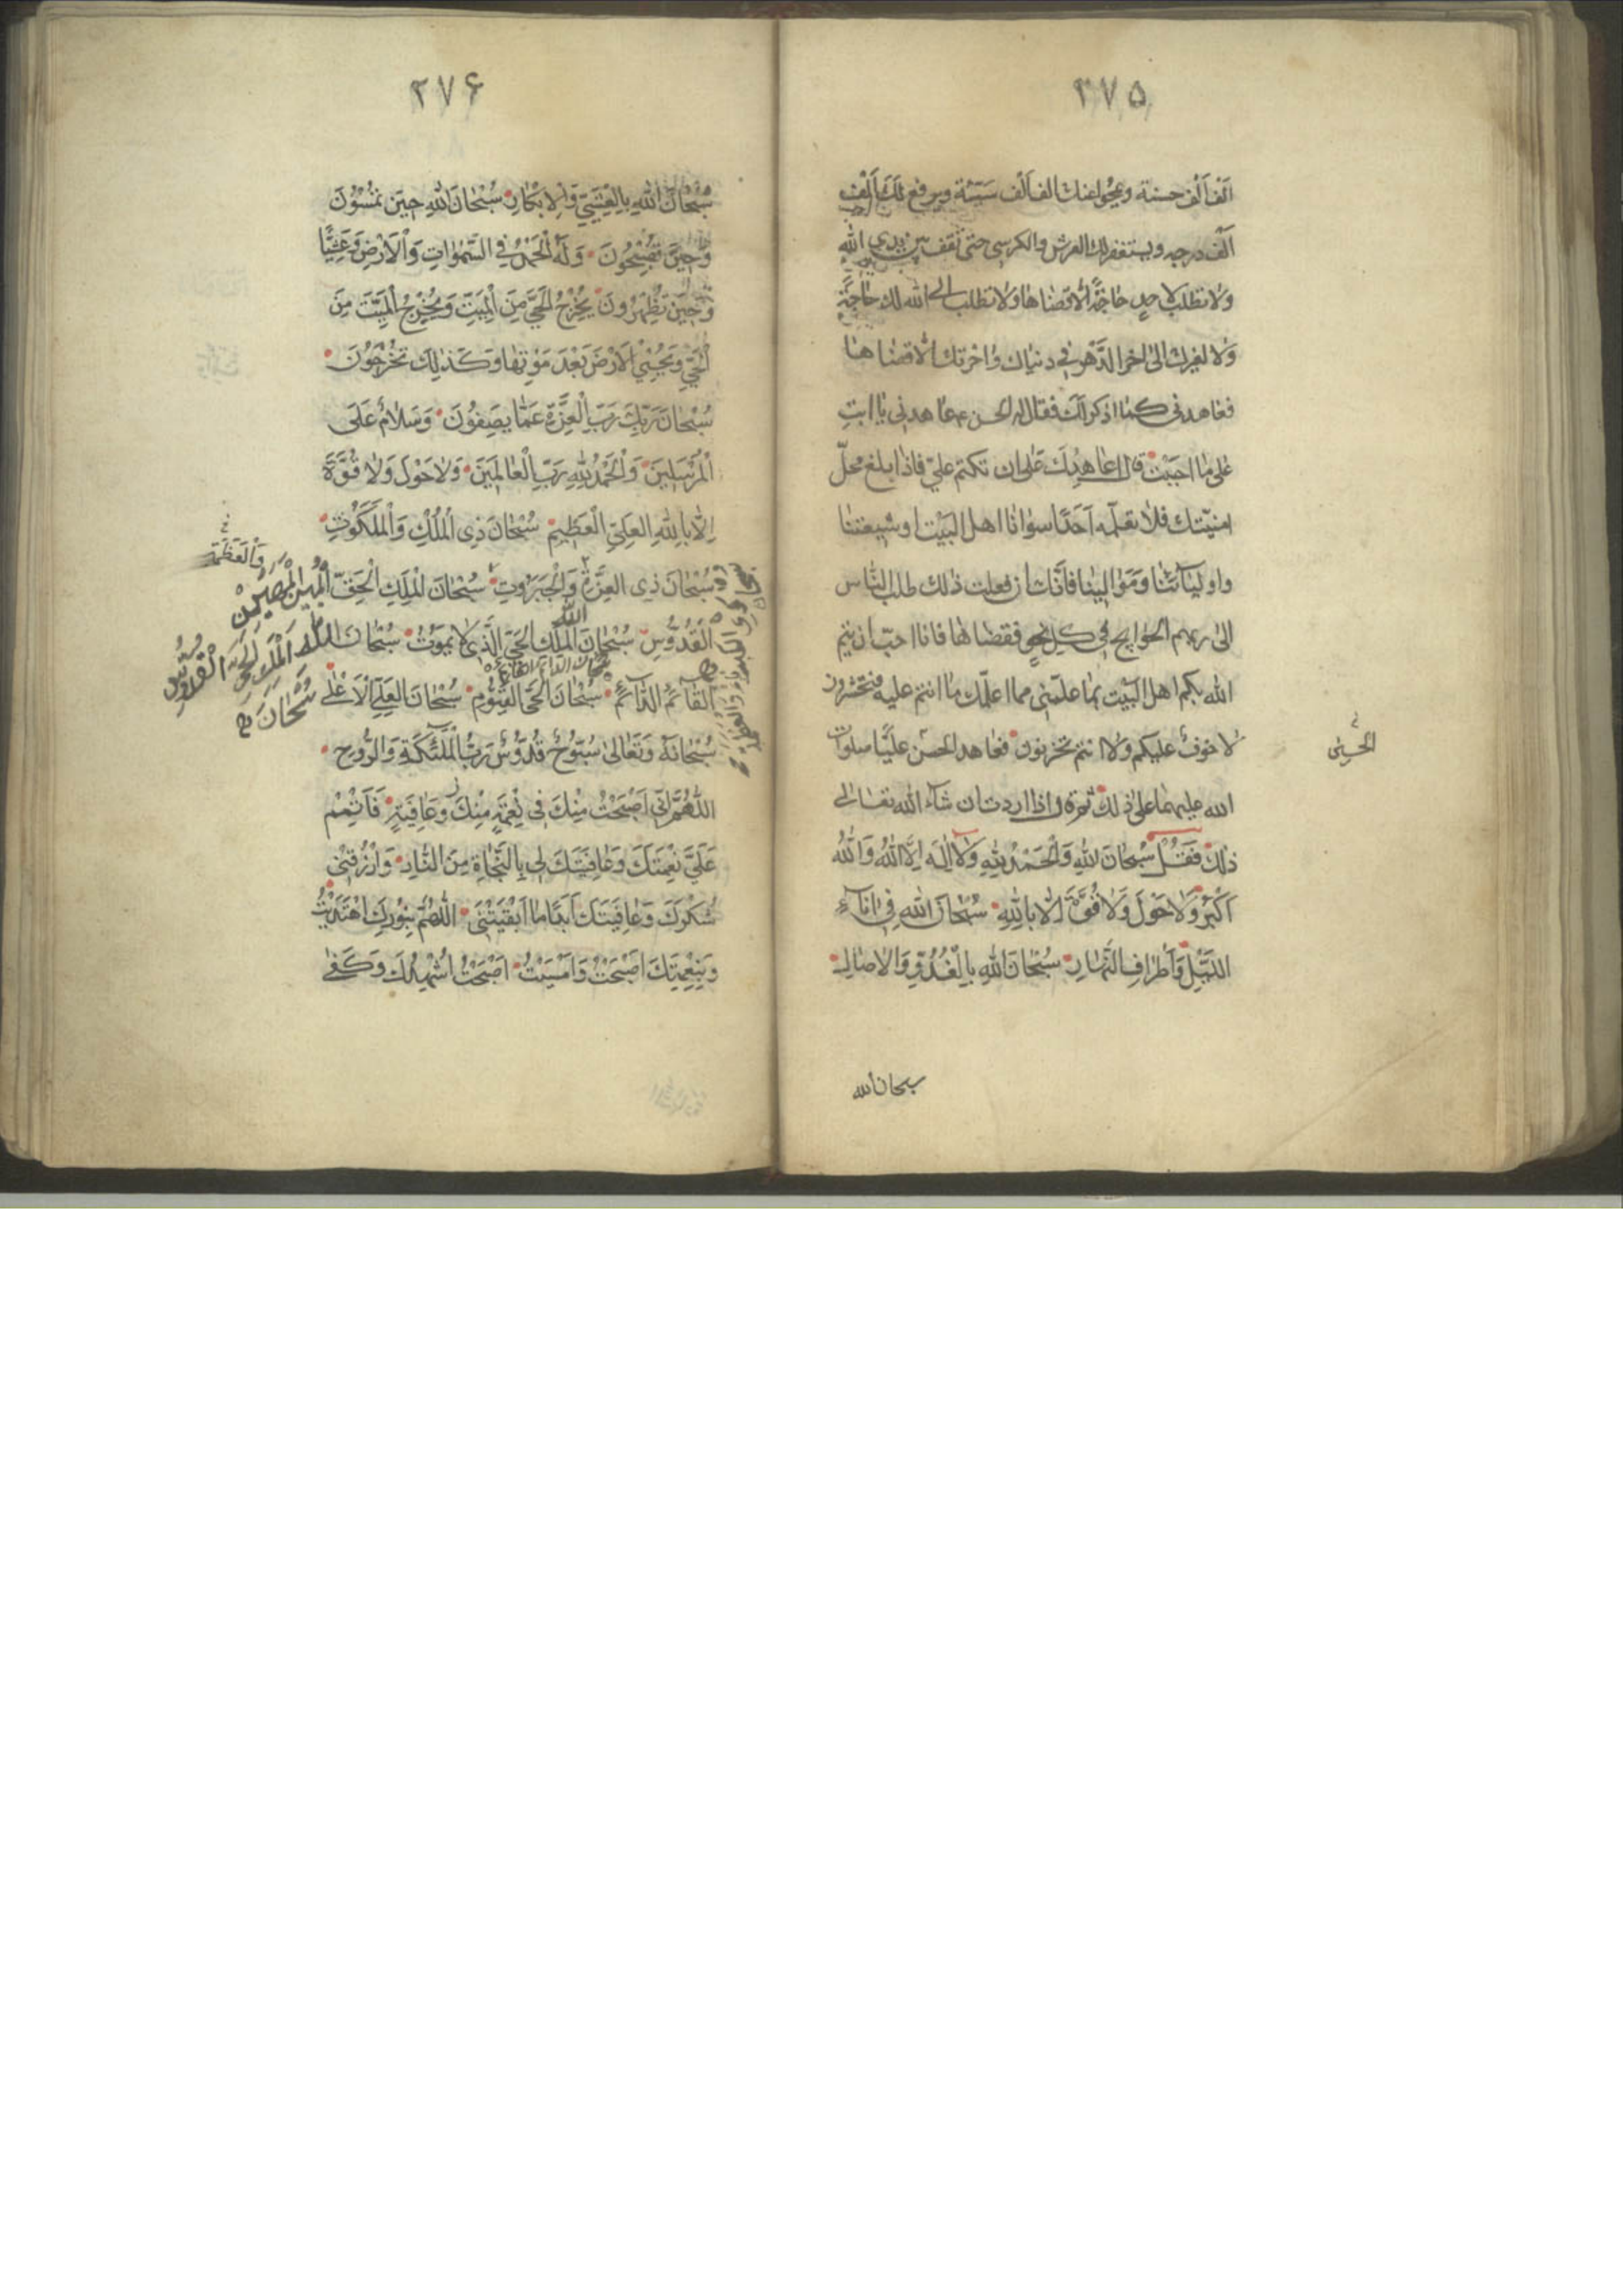 ٣٧٥
الف الف حسنة ويمحوا عنك الف الف سيئة ويرفع لك الف
الف درجه ويستغفر لك العرش والكرسى حتى تقف بين يدى الله
ولا تطلب لاحد حاجة الا قضاها ولا تطلب الى الله لك حاجة
ولا لغيرك الى اخر الدهر فى دنياك واخرتك الا قضاها
فعاهدنى كما اذكر لك فقال له الحسن ع عاهدنى يا ابت
على ما احببت قال اعاهدك على ان تكتم علىّ فاذا ابلغ محلّ
امنيّتك فلا تعلّمه احدًا سوانا اهل البيت او شيعتنا
واوليآئنا وموالينا فانّك ان فعلت ذلك طلب الناس
الى ربهم الحوايج فى كل نحو فقضاها فانا احبّ ان يتم
الله بكم اهل البيت بما علّمنى مما اعلّمك ما انتم عليه فتحشرون
لا خوفٌ عليكم ولا انتم تحزنون فعاهد الحسن عليًّا صلوات
الحسين
الله عليهما على ذلك ثم قال اذا اردت ان شآء الله تعالى
ذلك فَقُلْ سُبْحَانَ اللهِ وَالْحَمْدُ لِلّهِ وَلَا اِلَهَ اِلَّا اللهُ وَاللهُ
اَكْبَرُ وَلَا حَوْلَ وَلَا قُوَّةَ اِلَّا بِاللهِ سُبْحَانَ اللهِ فِى انَآءِ
اللَّيْلِ وَاَطْرَافِ النَّهَارِ سُبْحَانَ اللهِ بِالْغُدُوِّ وَالْاصَالِ
سبحان الله
٢٧۶
سُبْحَانَ اللهِ بِالْعَشِيِّ وَالْاِبْكَارِ سُبْحَانَ اللهِ حِينَ تُمْسُوْنَ
وَحِيْنَ تُصْبِحُونَ وَلَهُ الْحَمْدُ فِى السَّمٰوَاتِ وَالْاَرْضِ وَعَشِيًّا
وَحِيْنَ تُظْهِرُونَ يُخْرِجُ الْحَيَّ مِنَ الْمَيِّتِ وَيُخْرِجُ الْمَيِّتَ مِنَ
الْحَيِّ وَيُحْيِي الْاَرْضَ بَعْدَ مَوْتِهَا وَكَذٰلِكَ تُخْرَجُوْنَ
سُبْحَانَ رَبِّكَ رَبِّ الْعِزَّةِ عَمَّا يَصِفُونَ وَسَلَامٌ عَلَى
الْمُرْسَلِينَ وَالْحَمْدُ لِلهِ رَبِّ الْعَالَمِينَ وَلَا حَوْلَ وَلَا قُوَّةَ
اِلَّا بِاللهِ الْعَلِيِّ الْعَظِيْمِ سُبْحَانَ ذِى الْمُلْكِ وَالْمَلَكُوْتِ
وَالْعَظَمَةِ
سُبْحَانَ ذِى الْعِزَّةِ وَالْجَبَرُوتِ سُبْحَانَ الْمَلِكِ الْحَقِّ
الْمُبِيْنِ الْمُهَيْمِنِ
الْقُدُّوْسِ سُبْحَانَ الْمَلِكِ الْحَيِّ الَّذِى لَا يَمُوْتُ سُبْحَانَ
اللهِ الْمَلِكِ الْحَيِّ الْقُدُّوسِ
سُبْحَانَ
سُبْحَانَ الدائم القائم
الْقَآئِمِ الدَّآئِمِ سُبْحَانَ الْحَيِّ الْقَيُّوْمِ سُبْحَانَ الْعَلِيِّ الْاَعْلٰى
سُبْحَانَهُ وَتَعَالٰى سُبُّوْحٌ قُدُّوْسٌ رَبُّ الْمَلٰٓئِكَةِ وَالرُّوْحِ
اللّٰهُمَّ اِنِّى اَصْبَحْتُ مِنْكَ فِى نِعْمَةٍ وَعَافِيَةٍ فَاَتْمِمْ
عَلَيَّ نِعْمَتَكَ وَعَافِيَتَكَ لِى بِالنَّجَاةِ مِنَ النَّارِ وَارْزُقْنِى
شُكْرَكَ وَعَافِيَتَكَ اَبَدًا مَا اَبْقَيْتَنِى اللّٰهُمَّ بِنُوْرِكَ اهْتَدَيْتُ
وَبِنِعْمَتِكَ اَصْبَحْتُ وَاَمْسَيْتُ اَصْبَحْتُ اُشْهِدُكَ وَكَفٰى